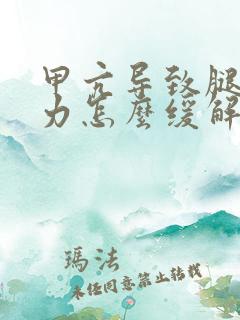 甲亢导致腿
力怎麽缓解
瑪法
未经同意禁止转载